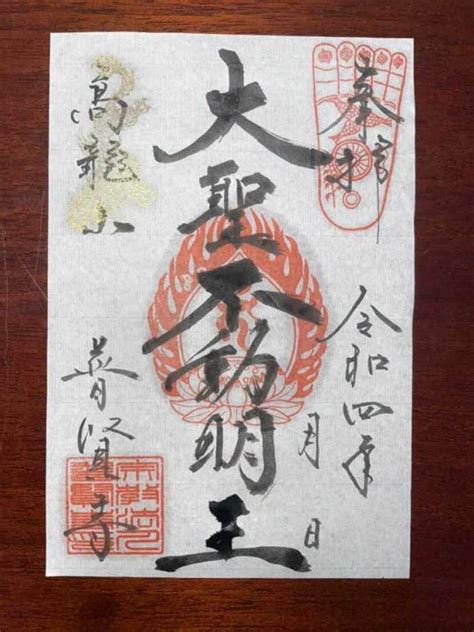 奉拝
令和四年
月 日
大聖不動明王
高龍山
普賢寺